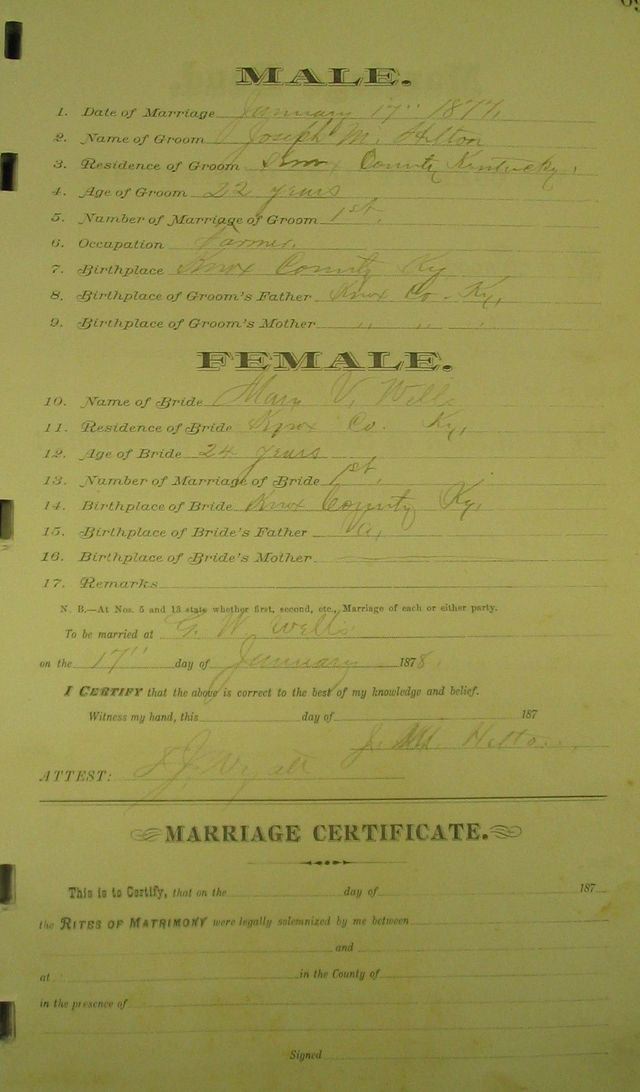 MALE.
1. Date of Marriage January 17" 1877,
2. Name of Groom Joseph M. Hilton
3. Residence of Groom Knox County Kentucky.
4. Age of Groom 22 years
5. Number of Marriage of Groom 1st,
6. Occupation Farmer.
7. Birthplace Knox County Ky
8. Birthplace of Groom's Father Knox Co. Ky,
9. Birthplace of Groom's Mother " " "
FEMALE.
10. Name of Bride Mary V. Wells
11. Residence of Bride Knox Co. Ky,
12. Age of Bride 24 years
13. Number of Marriage of Bride 1st,
14. Birthplace of Bride Knox County Ky,
15. Birthplace of Bride's Father Va,
16. Birthplace of Bride's Mother
17. Remarks
N. B.—At Nos. 5 and 13 state whether first, second, etc., Marriage of each or either party.
To be married at G. W. Wells
on the 17" day of January 1878.
I CERTIFY that the above is correct to the best of my knowledge and belief.
Witness my hand, this day of 187
J. M. Hilton
ATTEST: Wyatt
MARRIAGE CERTIFICATE.
This is to Certify, that on the day of 187
the RITES OF MATRIMONY were legally solemnized by me between
and
at in the County of
in the presence of
Signed